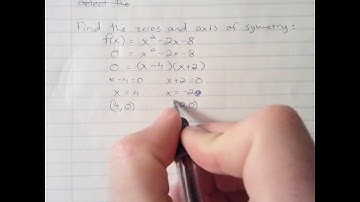 Find the zeros and axis of symetry:
f(x) = x² - 2x - 8
0 = x² - 2x - 8
0 = (x - 4)(x + 2)
x - 4 = 0 x + 2 = 0
x = 4 x = -2
(4, 0) 2, 0)